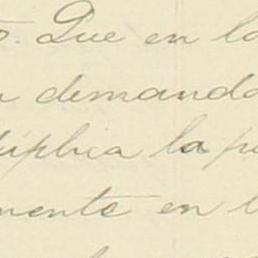 o. Que en la
demanda
suplica la pe
mente en l